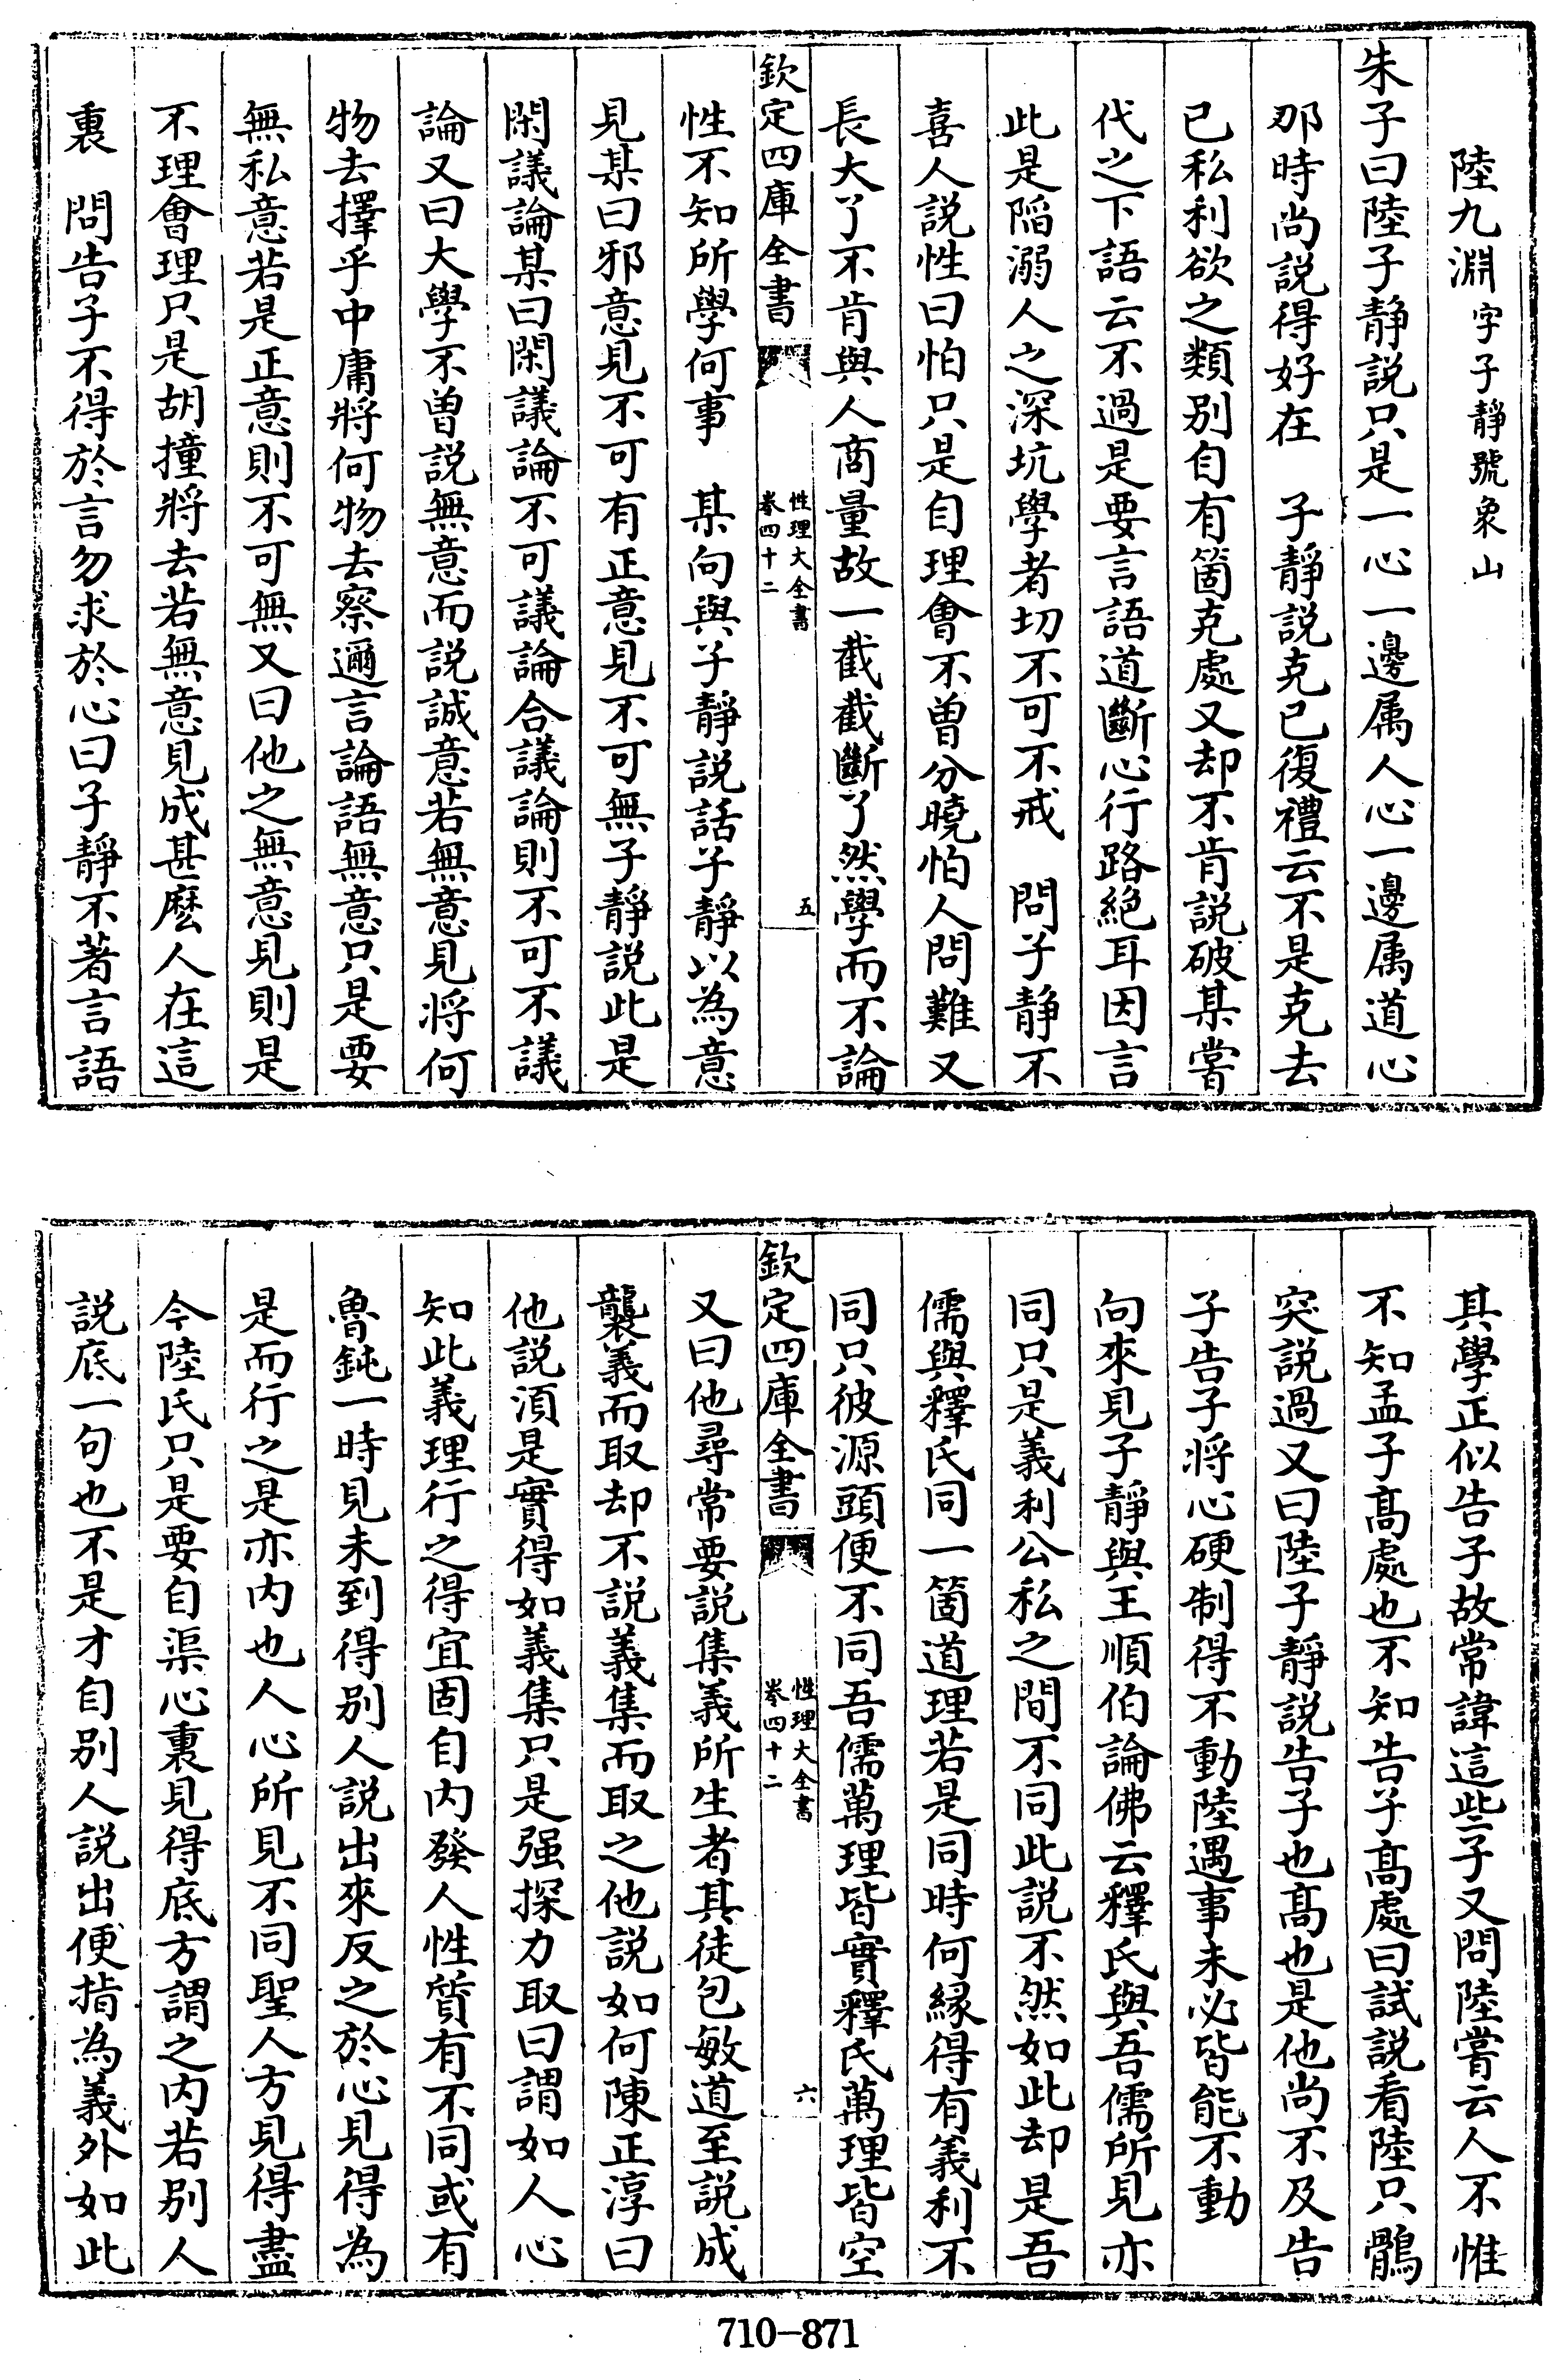 陸九淵字子靜號象山
朱子曰陸子靜説只是一心一邊属人心一邊属道心
那時尚説得好在　子靜説克已復禮云不是克去
已私利欲之類别自有箇克處又却不肯説破某嘗
代之下語云不過是要言語道斷心行路絶耳因言
此是陷溺人之深坑學者切不可不戒　問子静不
喜人説性曰怕只是自理會不曾分曉怕人問難又
長大了不肯與人商量故一截截斷了然學而不論
欽定四庫全書　性理大全書卷四十二　五
性不知所學何事　某向與子靜説話子靜以為意
見某曰邪意見不可有正意見不可無子靜説此是
閑議論某曰閑議論不可議論合議論則不可不議
論又曰大學不曾説無意而説誠意若無意見將何
物去擇乎中庸將何物去察邇言論語無意只是要
無私意若是正意則不可無又曰他之無意見則是
不理會理只是胡撞將去若無意見成甚麽人在這
裏　問告子不得於言勿求於心曰子靜不著言語
其學正似告子故常諱這些子又問陸嘗云人不惟
不知孟子髙處也不知告子髙處曰試説看陸只鶻
突説過又曰陸子靜説告子也髙也是他尚不及告
子告子將心硬制得不動陸遇事未必皆能不動
向來見子靜與王順伯論佛云釋氏與吾儒所見亦
同只是義利公私之間不同此説不然如此却是吾
儒與釋氏同一箇道理若是同時何縁得有義利不
同只彼源頭便不同吾儒萬理皆實釋氏萬理皆空
欽定四庫全書　性理大全書卷四十二　六
又曰他尋常要説集義所生者其徒包敏道至説成
襲義而取却不説義集而取之他説如何陳正淳曰
他説湏是實得如義集只是强探力取曰謂如人心
知此義理行之得宜固自内發人性質有不同或有
魯鈍一時見未到得别人説出來反之於心見得為
是而行之是亦内也人心所見不同聖人方見得盡
今陸氏只是要自渠心裏見得底方謂之内若别人
説底一句也不是才自别人説出便指為義外如此
710-871